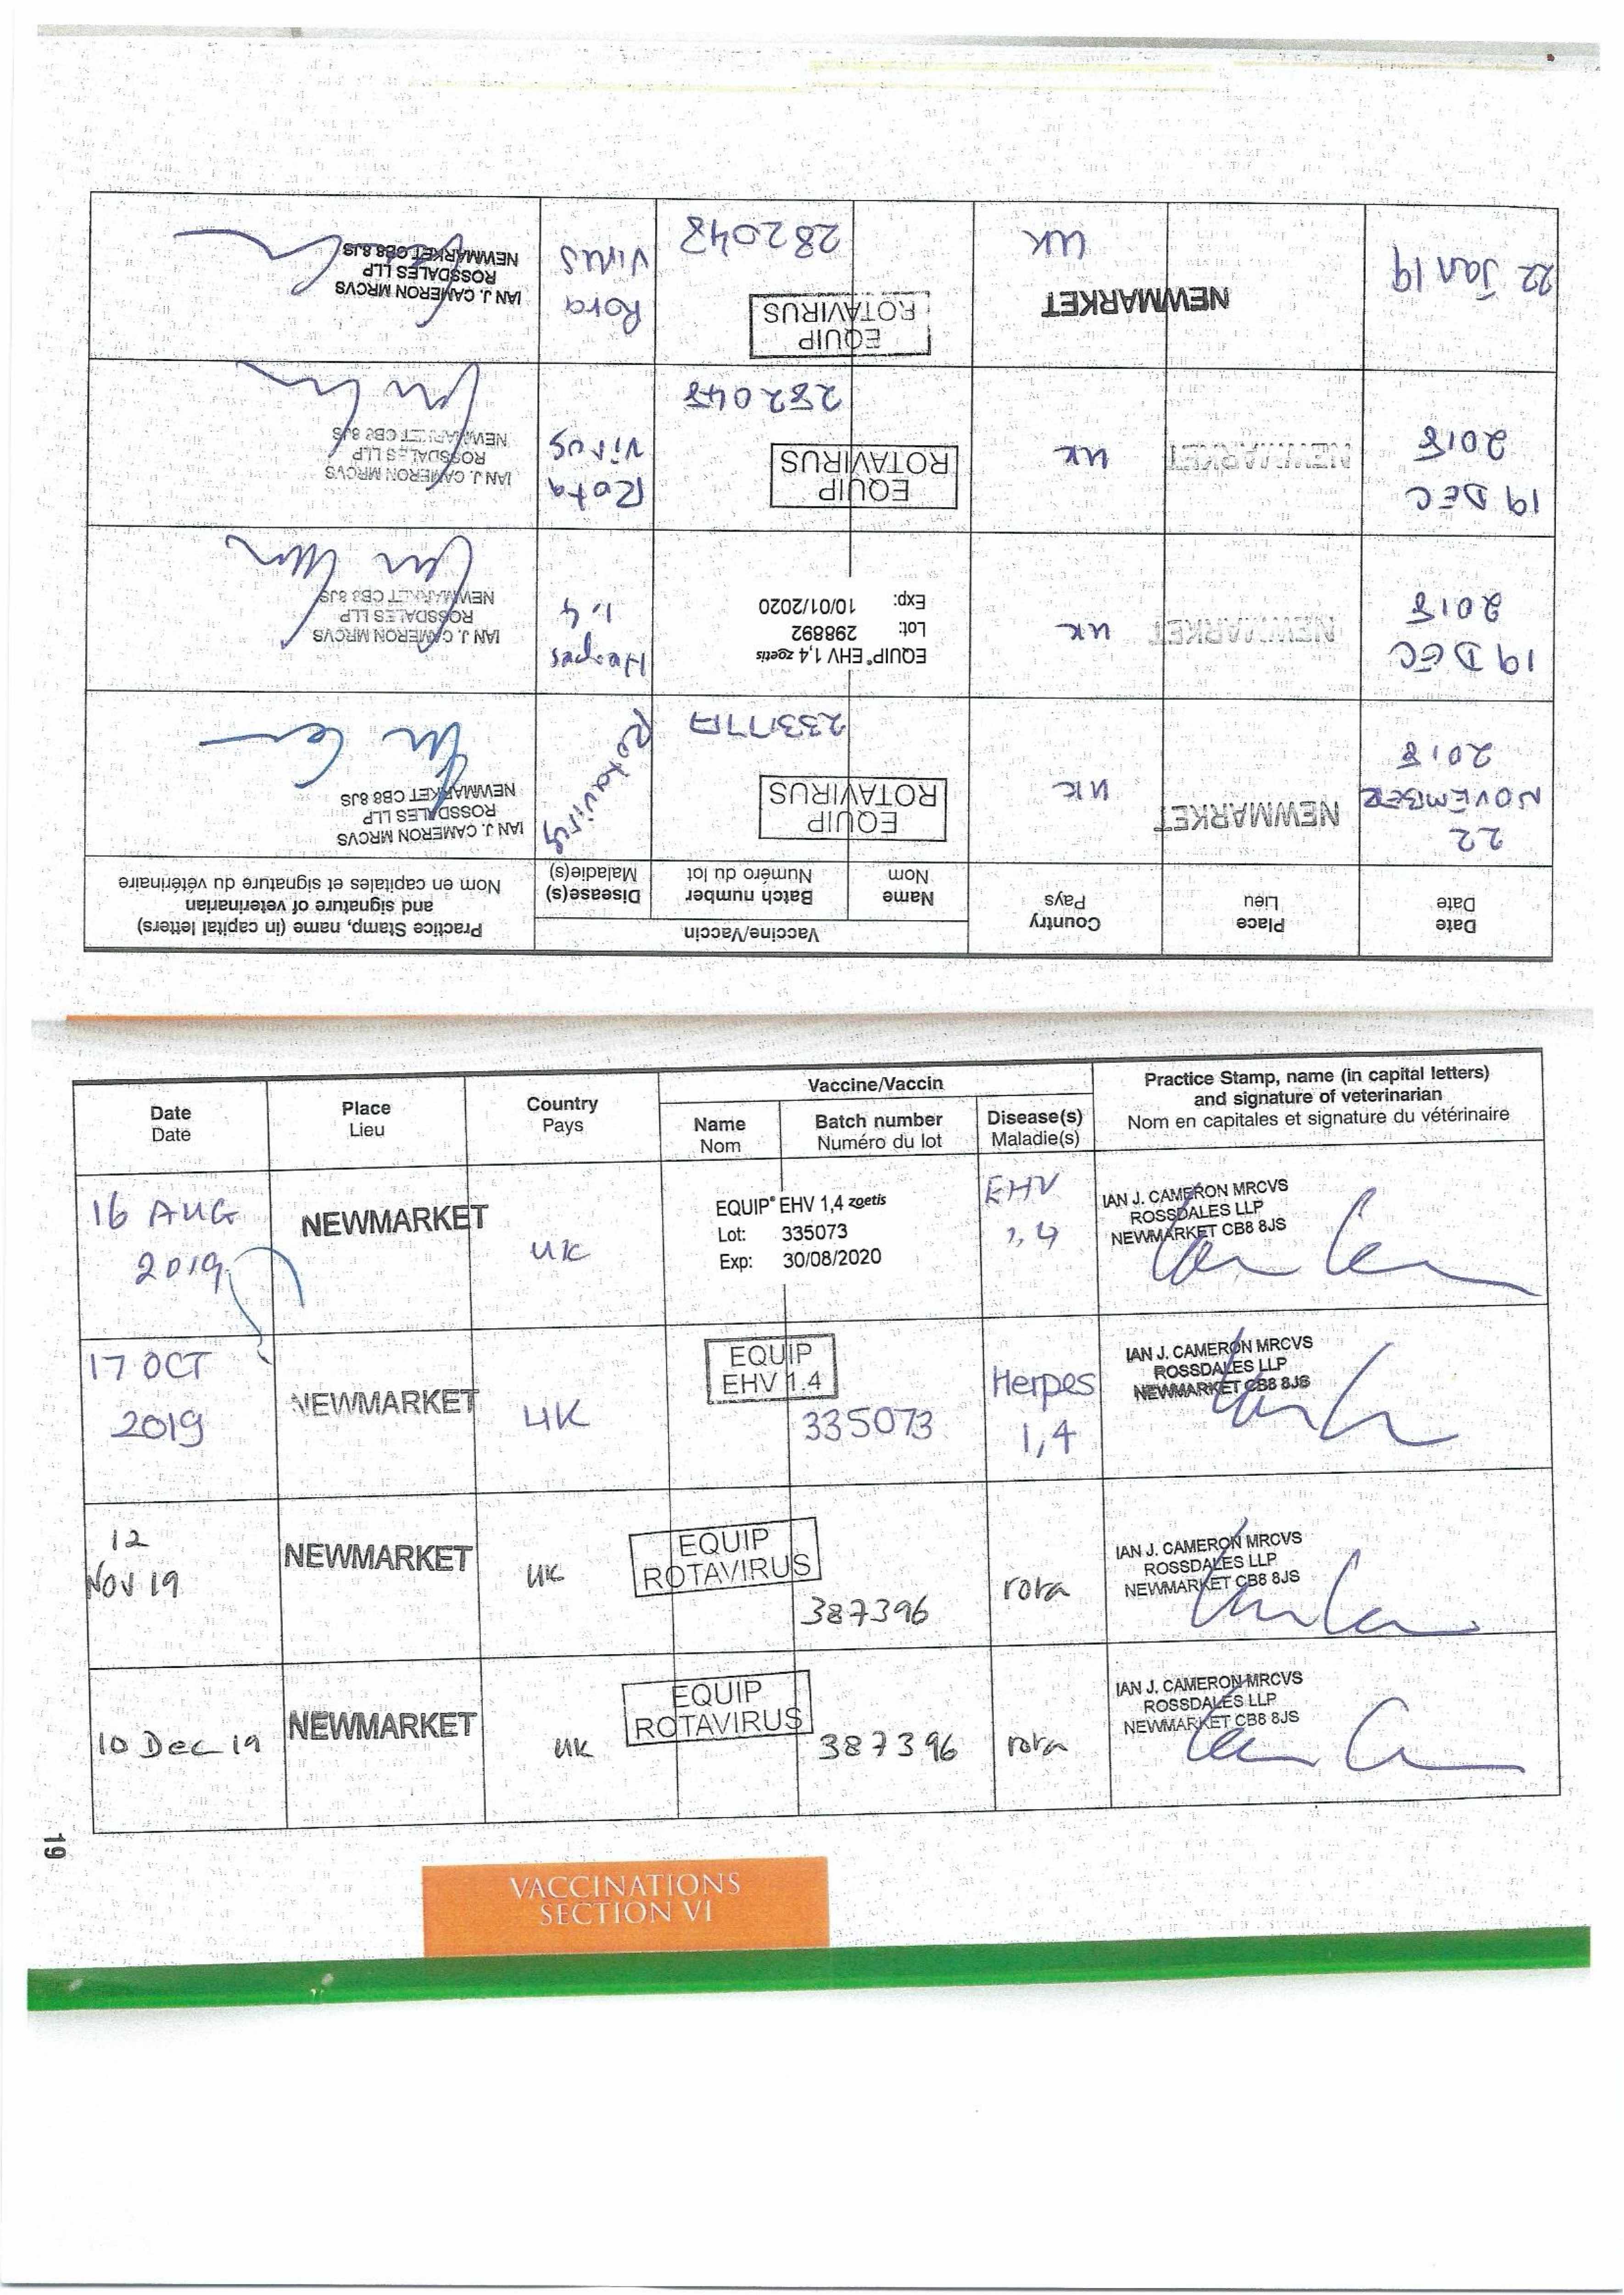 Date
Date
Place
Lieu
Country
Pays
Vaccine/Vaccin
Name
Nom
Batch number
Numéro du lot
Disease(s)
Maladie(s)
Practice Stamp, name (in capital letters)
and signature of veterinarian
Nom en capitales et signature du vétérinaire
22
NOVEMBER
2018
NEWMARKET
UK
EQUIP
ROTAVIRUS
Rotavirus
IAN J. CAMERON MRCVS
ROSSDALES LLP
NEWMARKET CB8 8JS
19 DEC
2018
NEWMARKET
UK
EQUIP® EHV 1,4 zoetis
Lot: 298892
Exp: 10/01/2020
Herpes
1.4
IAN J. CAMERON MRCVS
ROSSDALES LLP
NEWMARKET CB8 8JS
19 DEC
2018
NEWMARKET
UK
EQUIP
ROTAVIRUS
282048
Rota
Virus
IAN J. CAMERON MRCVS
ROSSDALES LLP
NEWMARKET CB8 8JS
22 Jan 19
NEWMARKET
UK
EQUIP
ROTAVIRUS
282048
Rota
Virus
IAN J. CAMERON MRCVS
ROSSDALES LLP
NEWMARKET CB8 8JS
Date
Date
Place
Lieu
Country
Pays
Vaccine/Vaccin
Name
Nom
Batch number
Numéro du lot
Disease(s)
Maladie(s)
Practice Stamp, name (in capital letters)
and signature of veterinarian
Nom en capitales et signature du vétérinaire
16 AUG
2019
NEWMARKET
UK
EQUIP® EHV 1,4 zoetis
Lot: 335073
Exp: 30/08/2020
EHV
1,4
IAN J. CAMERON MRCVS
ROSSDALES LLP
NEWMARKET CB8 8JS
17 OCT
2019
NEWMARKET
UK
EQUIP
EHV 1.4
335073
Herpes
1,4
IAN J. CAMERON MRCVS
ROSSDALES LLP
NEWMARKET CB8 8JS
12
NOV 19
NEWMARKET
UK
EQUIP
ROTAVIRUS
387396
rota
IAN J. CAMERON MRCVS
ROSSDALES LLP
NEWMARKET CB8 8JS
10 Dec 19
NEWMARKET
UK
EQUIP
ROTAVIRUS
387396
rota
IAN J. CAMERON MRCVS
ROSSDALES LLP
NEWMARKET CB8 8JS
19
VACCINATIONS
SECTION VI